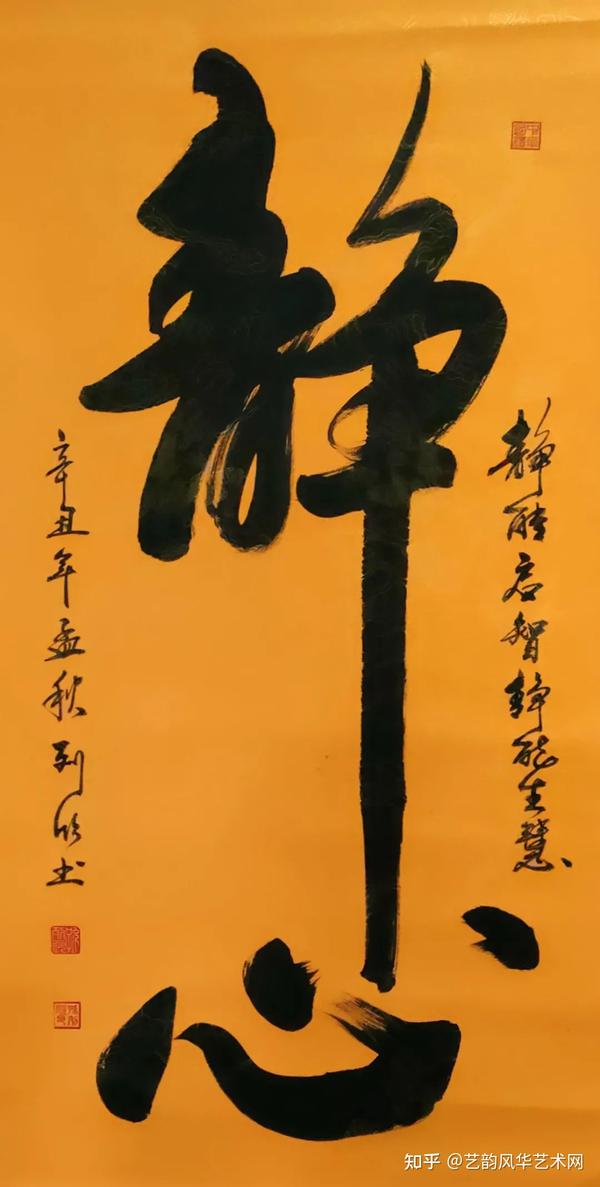 静能启智静能生慧
静心
辛丑年孟秋刘书
知乎 @艺韵风华艺术网